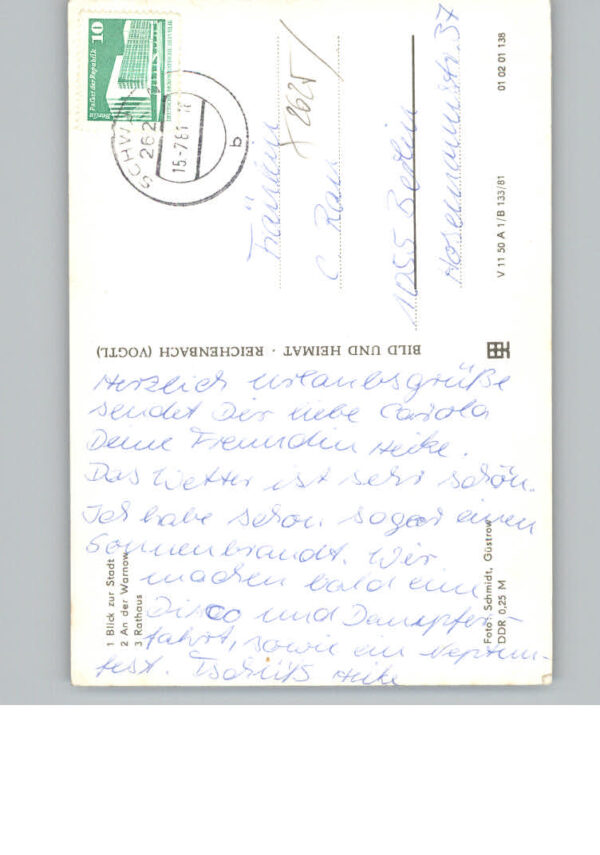 10
Palast der Republik
Berlin
15-7.81
b
2625
Fräulein
C. Rau
1055 Berlin
Hosemannstr. 37
01 02 01 138
V 11 50 A 1/B 133/81
BILD UND HEIMAT · REICHENBACH (VOGTL)
Herzlich Urlaubsgrüße
sendet Dir liebe Cariola
Deine Freundin Heike.
Das Wetter ist sehr schön.
Ich habe schon sogar einen
Sonnenbrandt. Wir
machen bald eine
Disco und Dampfer-
fahrt, sowie ein Neptun-
fest. Tschüß Heike
1 Blick zur Stadt
2 An der Warnow
3 Rathaus
Foto: Schmidt, Güstrow
DDR 0,25 M